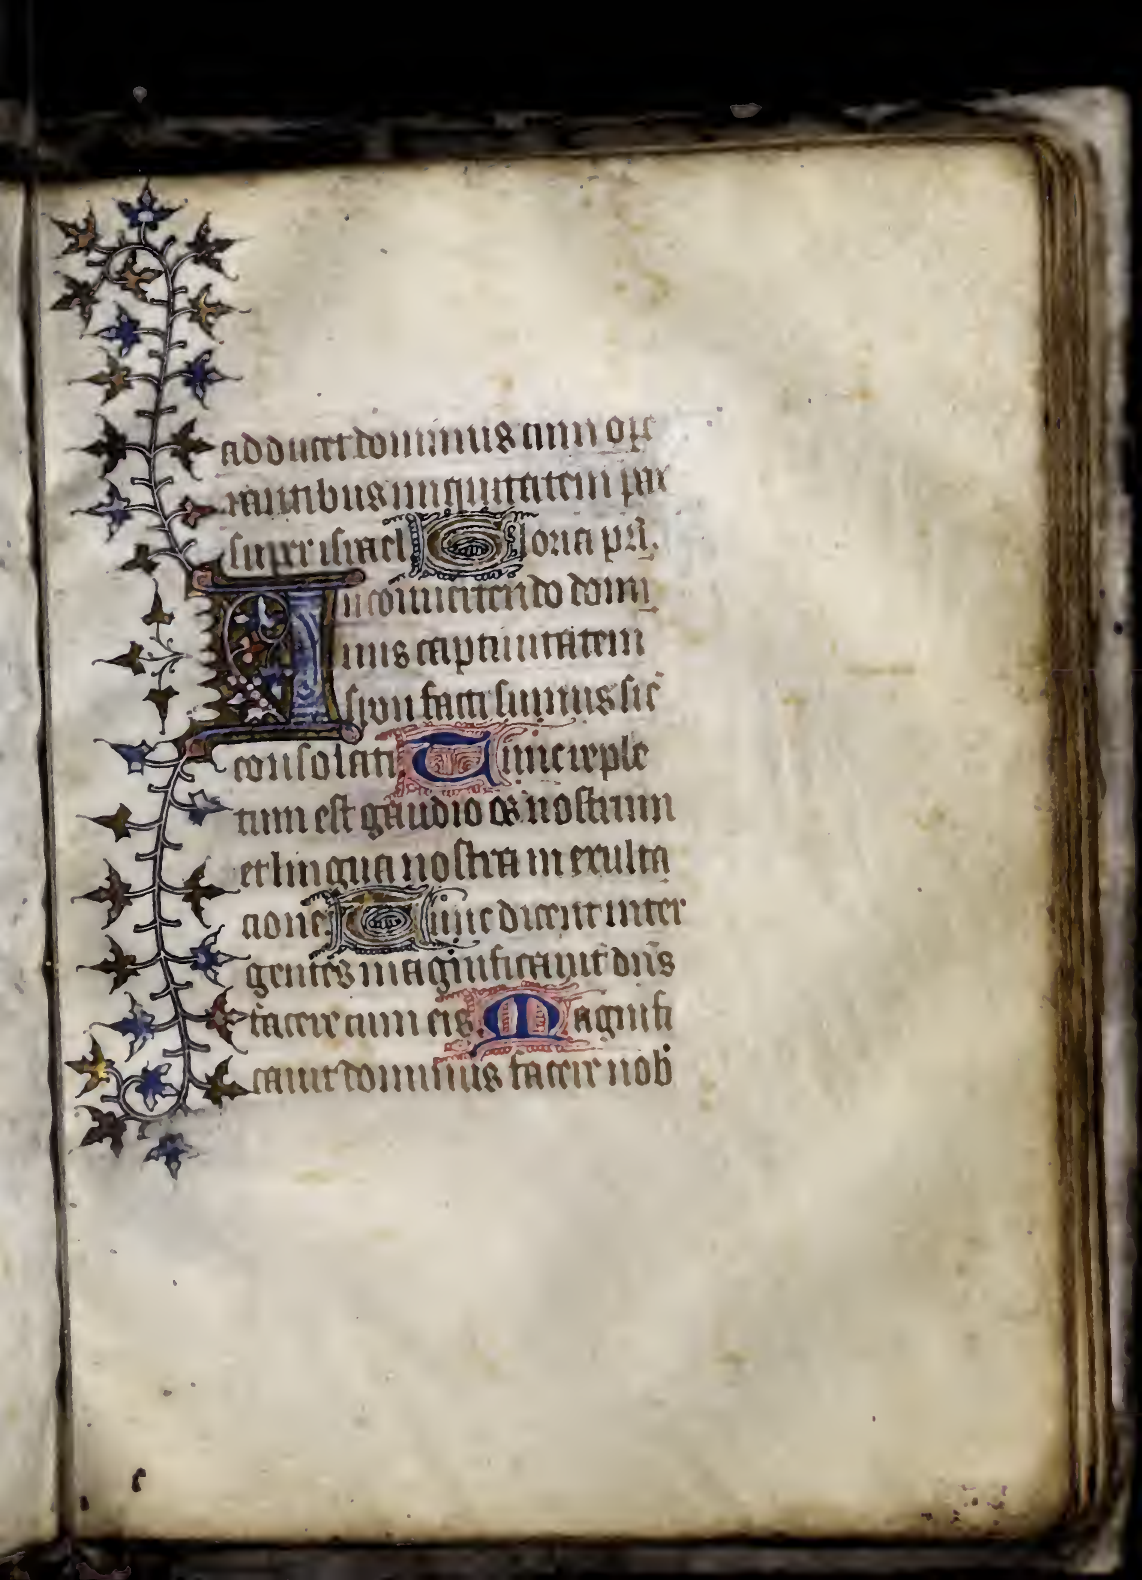 adducet dominus cum ope
rantibus iniquitatem pax
super israel Gloria pri.
In conuertendo domi
nus captiuitatem
sion facti sumus sic
consolati Tunc reple
tum est gaudio os nostrum
et lingua nostra in exulta
cione Tunc dicent inter
gentes magnificauit dns
facere cum eis Magnifi
cauit dominus facere nob